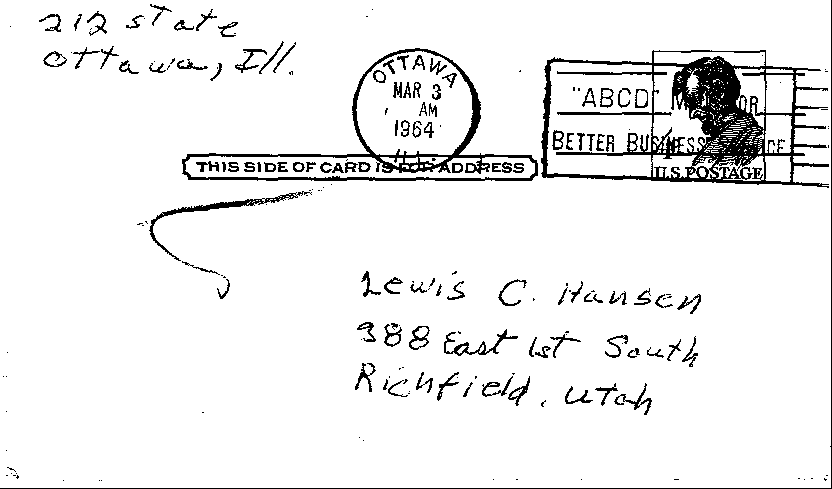 212 State
Ottawa, Ill.
OTTAWA
MAR 3
AM
1964
ILL.
"ABCD" MAIL FOR
BETTER BUSINESS SERVICE
4¢
U.S. POSTAGE
THIS SIDE OF CARD IS FOR ADDRESS
Lewis C. Hansen
388 East 1st South
Richfield, Utah